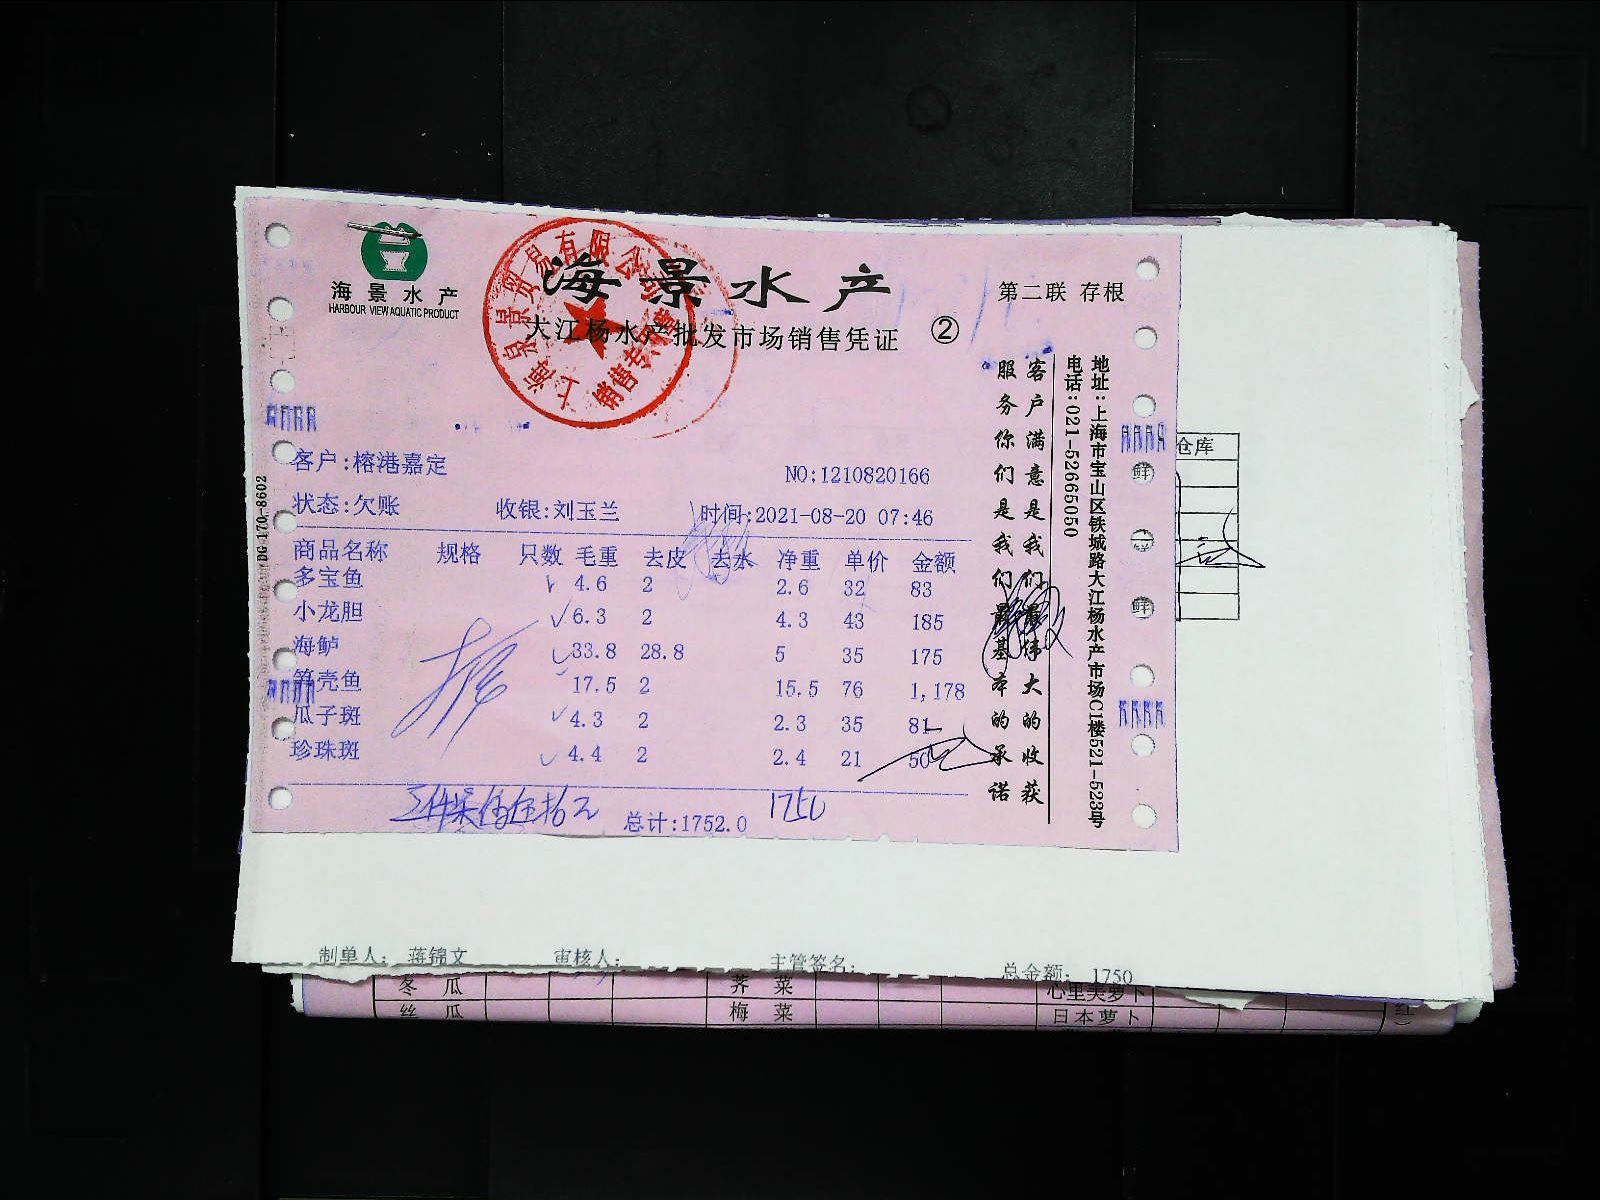 海景水产
HARBOUR VIEW AQUATIC PRODUCT
海景水产
第二联 存根
大江杨水产批发市场销售凭证 ②
上海泉景贸易有限公司
销售专用章
客户:榕港嘉定
NO:1210820166
状态:欠账 收银:刘玉兰 时间:2021-08-20 07:46
商品名称 规格 只数 毛重 去皮 去水 净重 单价 金额
多宝鱼 4.6 2 2.6 32 83
小龙胆 6.3 2 4.3 43 185
海鲈 33.8 28.8 5 35 175
笋壳鱼 17.5 2 15.5 76 1,178
瓜子斑 4.3 2 2.3 35 81
珍珠斑 4.4 2 2.4 21 50
总计:1752.0
1750
客户满意是我们最伟大的收获
服务你们是我们最基本的承诺
地址:上海市宝山区铁城路大江杨水产市场C1楼521-523号
电话:021-52665050
DG-170-8602
仓库
鲜
鲜
鲜
制单人: 蒋锦文 审核人: 主管签名: 总金额: 1750
冬瓜 荠菜 心里美萝卜
丝瓜 梅菜 日本萝卜